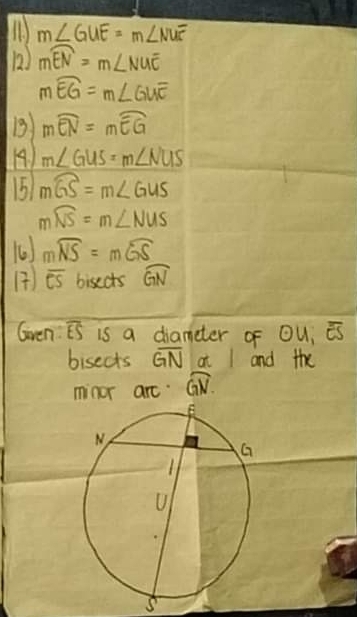 11) m∠GUE = m∠NUE
12) mEN = m∠NUE
mEG = m∠GUE
13) mEN = mEG
14) m∠GUS = m∠NUS
15) mGS = m∠GUS
mNS = m∠NUS
16) mNS = mGS
17) ES bisects GN
Given: ES is a diameter of ⊙U; ES
bisects GN at I and the
minor arc GN.
E
N
G
I
U
S